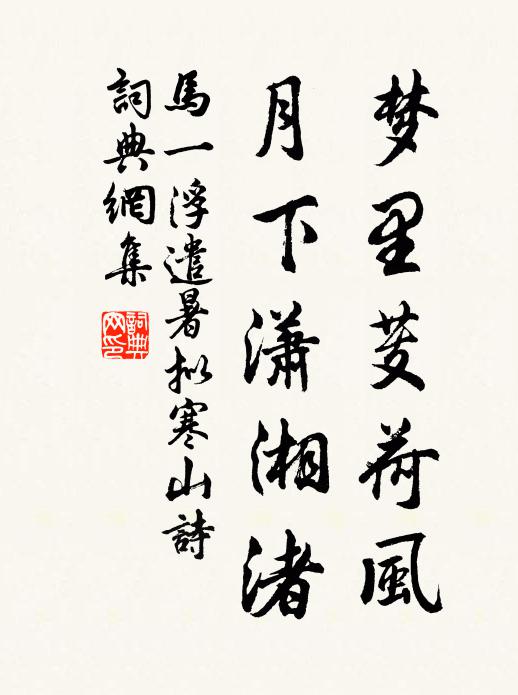 梦里芰荷風
月下瀟湘渚
馬一浮遣暑拟寒山詩
詞典網集
詞典
网印